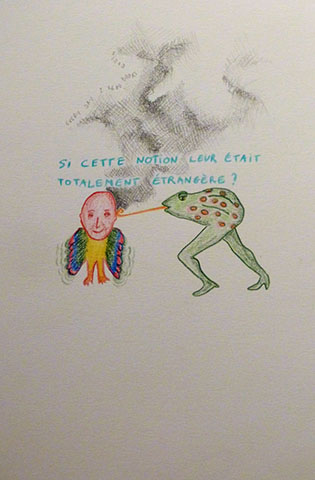 SI CETTE NOTION LEUR ÉTAIT
TOTALEMENT ÉTRANGÈRE ?